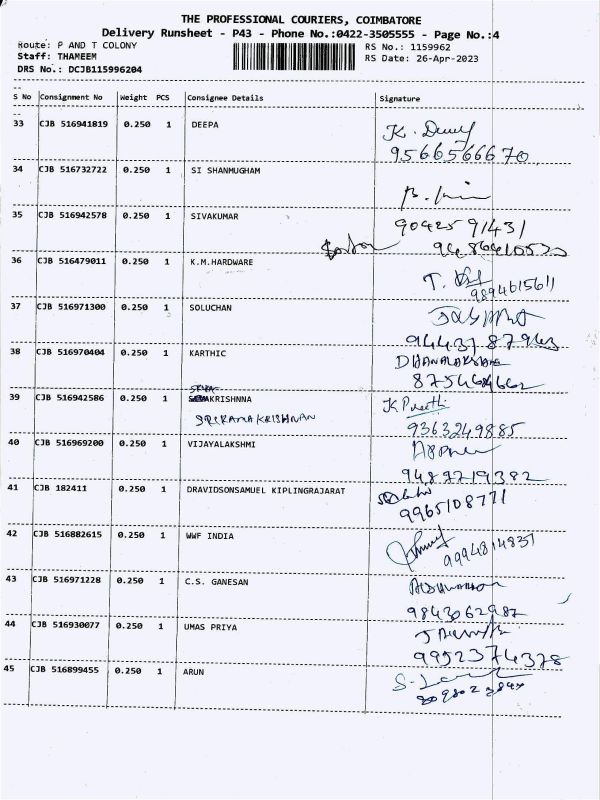 THE PROFESSIONAL COURIERS, COIMBATORE
Delivery Runsheet - P43 - Phone No.:0422-3505555 - Page No.:4
Route: P AND T COLONY RS No.: 1159962
Staff: THAMEEM RS Date: 26-Apr-2023
DRS No.: DCJB115996204
S No Consignment No Weight PCS Consignee Details Signature
33 CJB 516941819 0.250 1 DEEPA
9566566670
34 CJB 516732722 0.250 1 SI SHANMUGHAM
35 CJB 516942578 0.250 1 SIVAKUMAR
9042591431
36 CJB 516479011 0.250 1 K.M.HARDWARE
9894615611
37 CJB 516971300 0.250 1 SOLUCHAN
9443787963
38 CJB 516970404 0.250 1 KARTHIC
39 CJB 516942586 0.250 1 KRISHNNA
SRIRAMAKRISHNAN
K Preethi
9363249885
40 CJB 516969200 0.250 1 VIJAYALAKSHMI
9487219382
41 CJB 182411 0.250 1 DRAVIDSONSAMUEL KIPLINGRAJARAT
9965108771
42 CJB 516882615 0.250 1 WWF INDIA
9994814831
43 CJB 516971228 0.250 1 C.S. GANESAN
9843062982
44 CJB 516930077 0.250 1 UMAS PRIYA
9952374378
45 CJB 516899455 0.250 1 ARUN